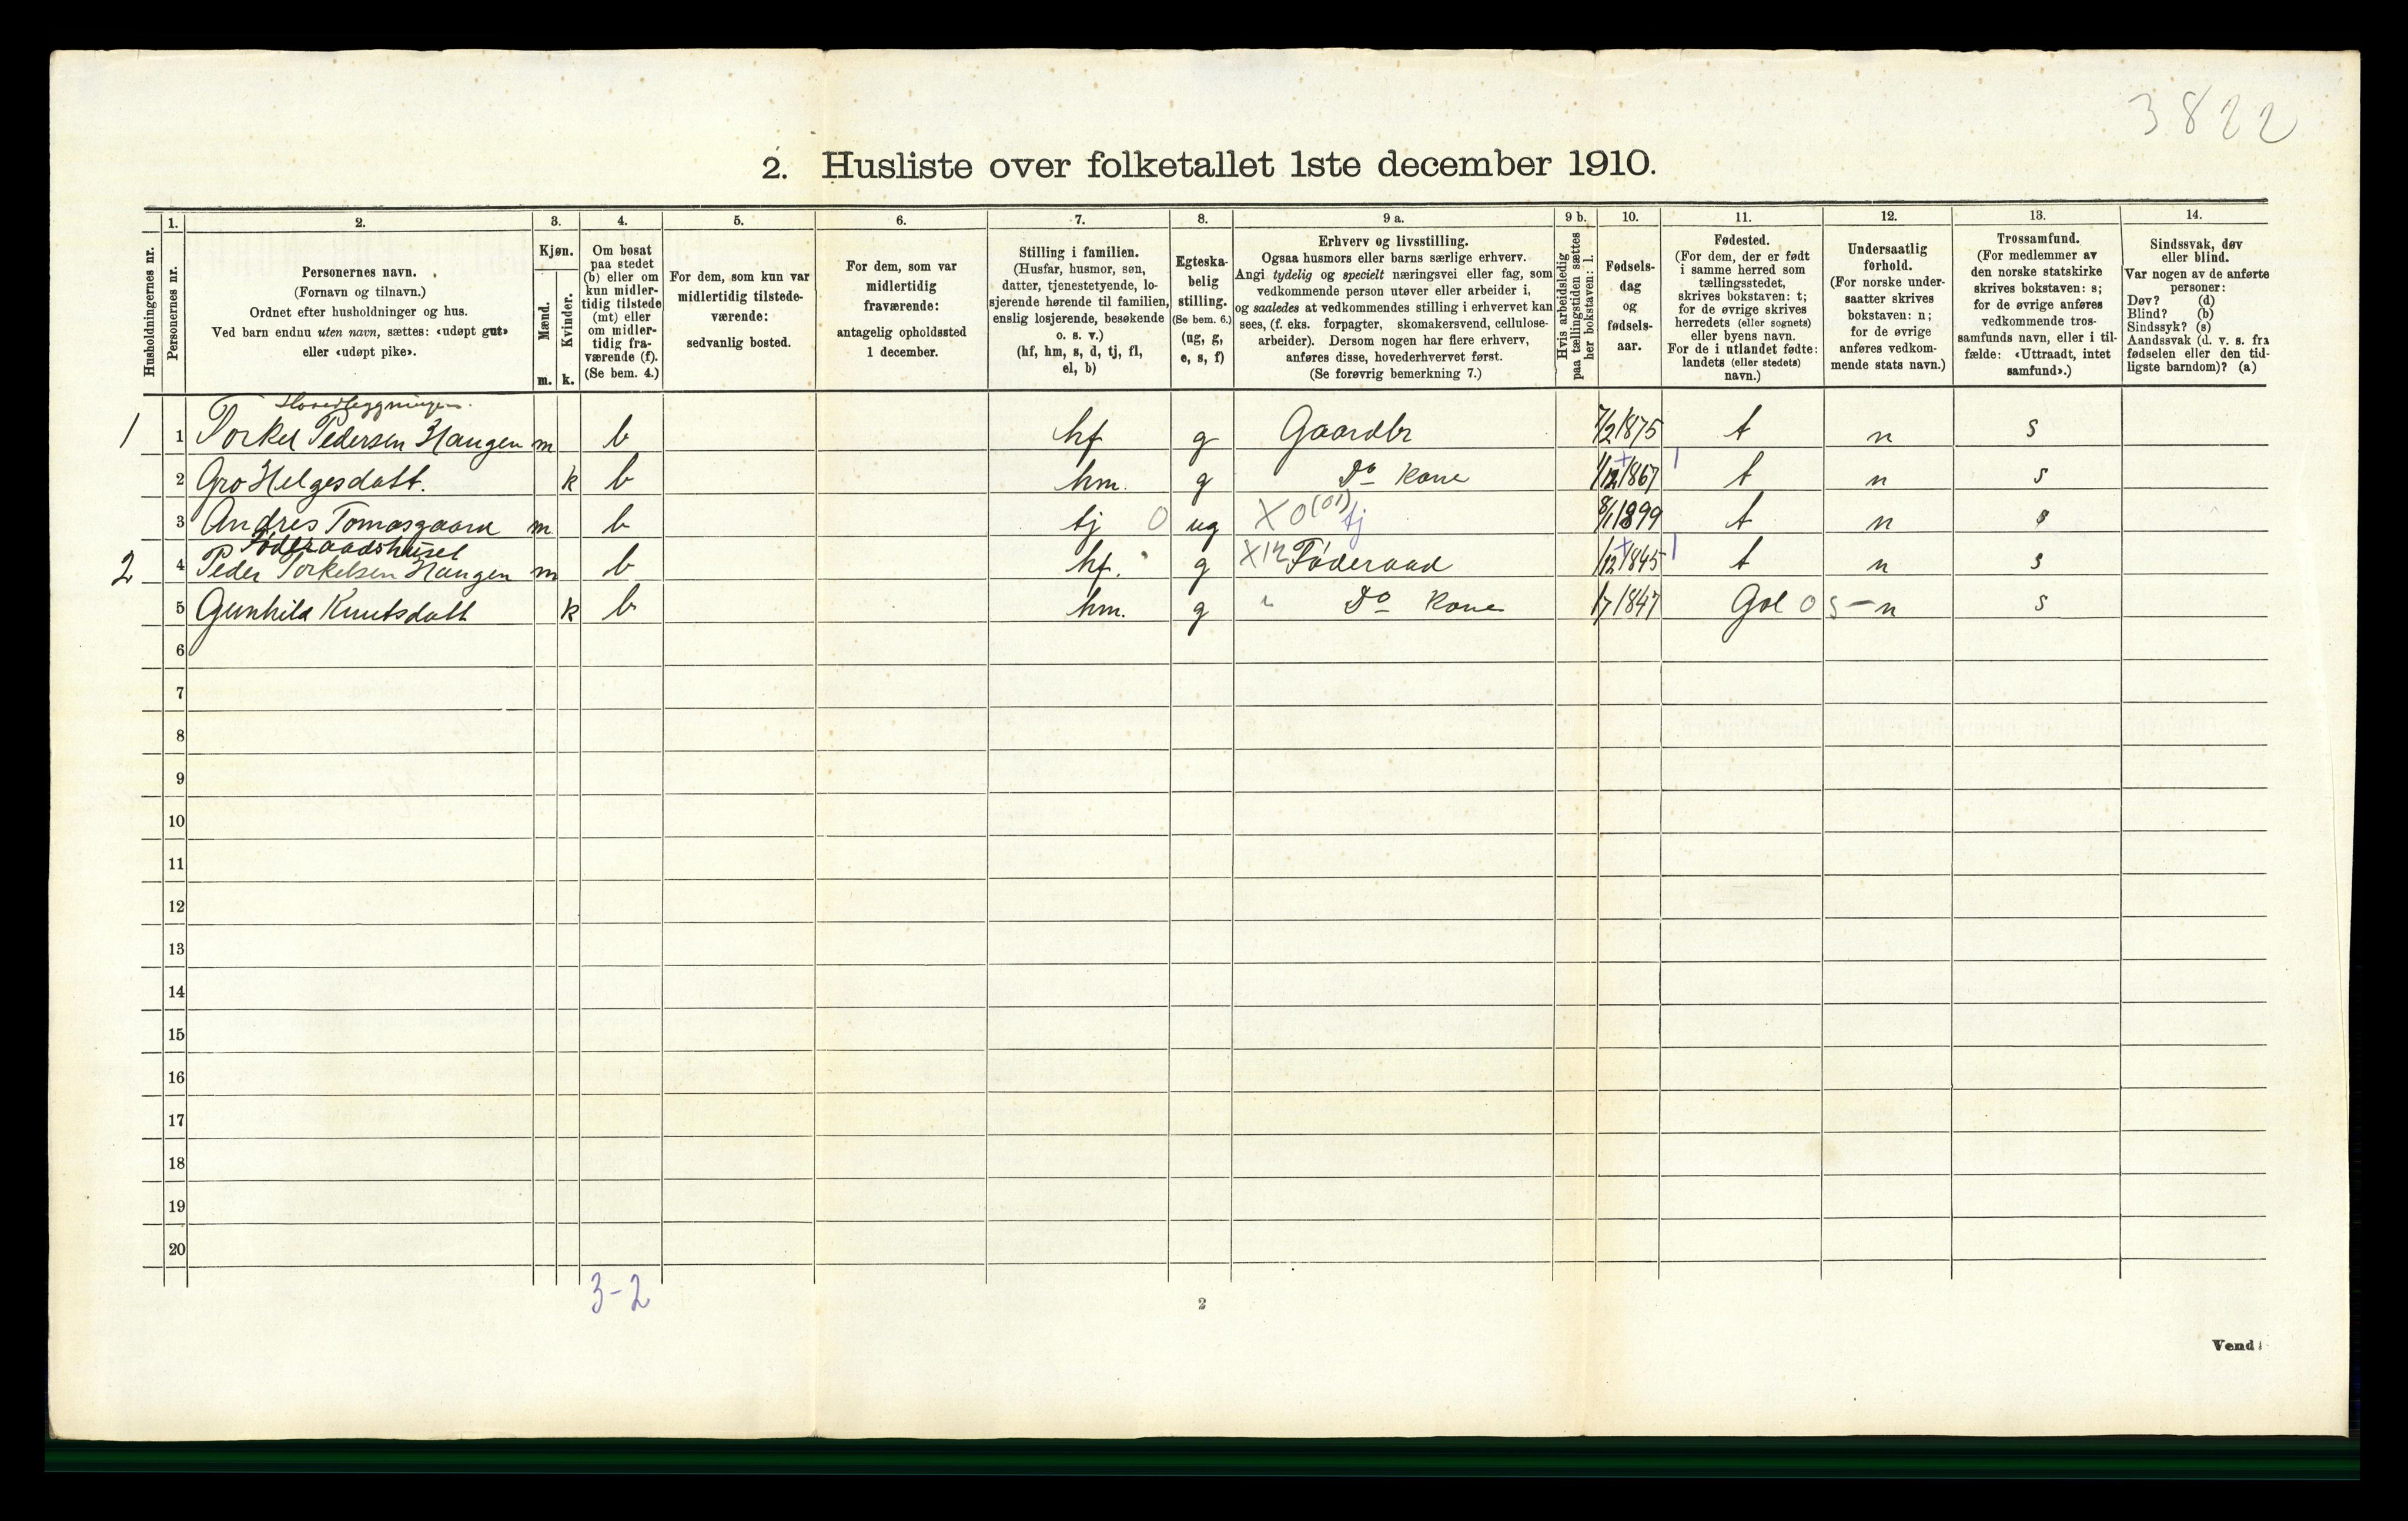 3822
2. Husliste over folketallet 1ste december 1910.
Husholdningernes nr.
1.
Personernes nr.
2.
Personernes navn.
(Fornavn og tilnavn.)
Ordnet efter husholdninger og hus.
Ved barn endnu uten navn, sættes: «udøpt gut»
eller «udøpt pike».
3.
Kjøn.
Mænd.
Kvinder.
m. k.
4.
Om bosat
paa stedet
(b) eller om
kun midler-
tidig tilstede
(mt) eller
om midler-
tidig fra-
værende (f).
(Se bem. 4.)
5.
For dem, som kun var
midlertidig tilstede-
værende:
sedvanlig bosted.
6.
For dem, som var
midlertidig
fraværende:
antagelig opholdssted
1 december.
7.
Stilling i familien.
(Husfar, husmor, søn,
datter, tjenestetyende, lo-
sjerende hørende til familien,
enslig losjerende, besøkende
o. s. v.)
(hf, hm, s, d, tj, fl,
el, b)
8.
Egteska-
belig
stilling.
(Se bem. 6.)
(ug, g,
e, s, f)
9 a.
Erhverv og livsstilling.
Ogsaa husmors eller barns særlige erhverv.
Angi tydelig og specielt næringsvei eller fag, som
vedkommende person utøver eller arbeider i,
og saaledes at vedkommendes stilling i erhvervet kan
sees, (f. eks. forpagter, skomakersvend, cellulose-
arbeider). Dersom nogen har flere erhverv,
anføres disse, hovederhvervet først.
(Se forøvrig bemerkning 7.)
9 b.
Hvis arbeidsledig
paa tællingstiden sættes
her bokstaven: l.
10.
Fødsels-
dag
og
fødsels-
aar.
11.
Fødested.
(For dem, der er født
i samme herred som
tællingsstedet,
skrives bokstaven: t;
for de øvrige skrives
herredets (eller sognets)
eller byens navn.
For de i utlandet fødte:
landets (eller stedets)
navn.)
12.
Undersaatlig
forhold.
(For norske under-
saatter skrives
bokstaven: n;
for de øvrige
anføres vedkom-
mende stats navn.)
13.
Trossamfund.
(For medlemmer av
den norske statskirke
skrives bokstaven: s;
for de øvrige anføres
vedkommende tros-
samfunds navn, eller i til-
fælde: «Uttraadt, intet
samfund».)
14.
Sindssvak, døv
eller blind.
Var nogen av de anførte
personer:
Døv? (d)
Blind? (b)
Sindssyk? (s)
Aandssvak (d. v. s. fra
fødselen eller den tid-
ligste barndom)? (a)
1 1 Torkel Pedersen Haugen m b hf g Gaardbr 7/2 1875 t n s
2 Gro Helgesdatt. k b hm. g Do Kone 1/12 1867 t n s
3 Andres Tomasgaard m b tj 0 ug X 0 (01) tj 8/1 1899 t n s
Føderaadshuset
2 4 Peder Torkelsen Haugen m b hf. g X12 Føderaad 1/12 1845 t n s
5 Gunhild Knutsdatt k b hm. g " Do Kone 1/7 1847 Gol 05 - n s
6
7
8
9
10
11
12
13
14
15
16
17
18
19
20
3-2
2
Vend!